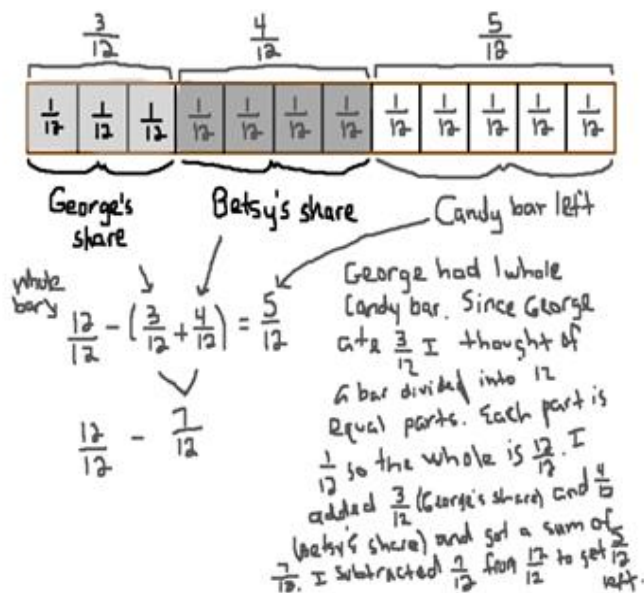 3/12 4/12 5/12
1/12 1/12 1/12 1/12 1/12 1/12 1/12 1/12 1/12 1/12 1/12 1/12
George's share
Betsy's share
Candy bar left
whole bar
12/12 - (3/12 + 4/12) = 5/12
12/12 - 7/12
George had 1 whole
Candy bar. Since George
ate 3/12 I thought of
a bar divided into 12
equal parts. Each part is
1/12 so the whole is 12/12. I
added 3/12 (George's share) and 4/12
(Betsy's share) and got a sum of
7/12. I subtracted 7/12 from 12/12 to get 5/12
left.